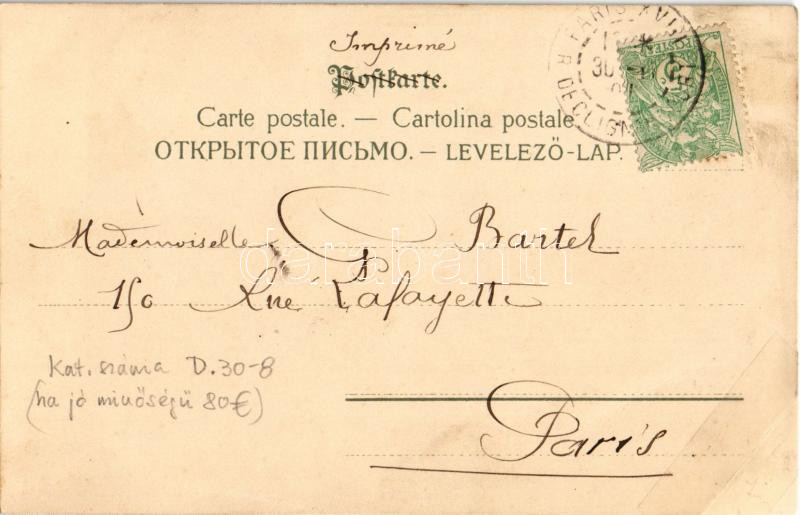 Imprimé
Postkarte.
Carte postale. — Cartolina postale.
ОТКРЫТОЕ ПИСЬМО. — LEVELEZŐ-LAP.
Mademoiselle G Bartel
150 Rue Lafayette
Kat. száma D.30-8
(ha jó minőségű 80€)
Paris
darabanth
PARIS XVII
30